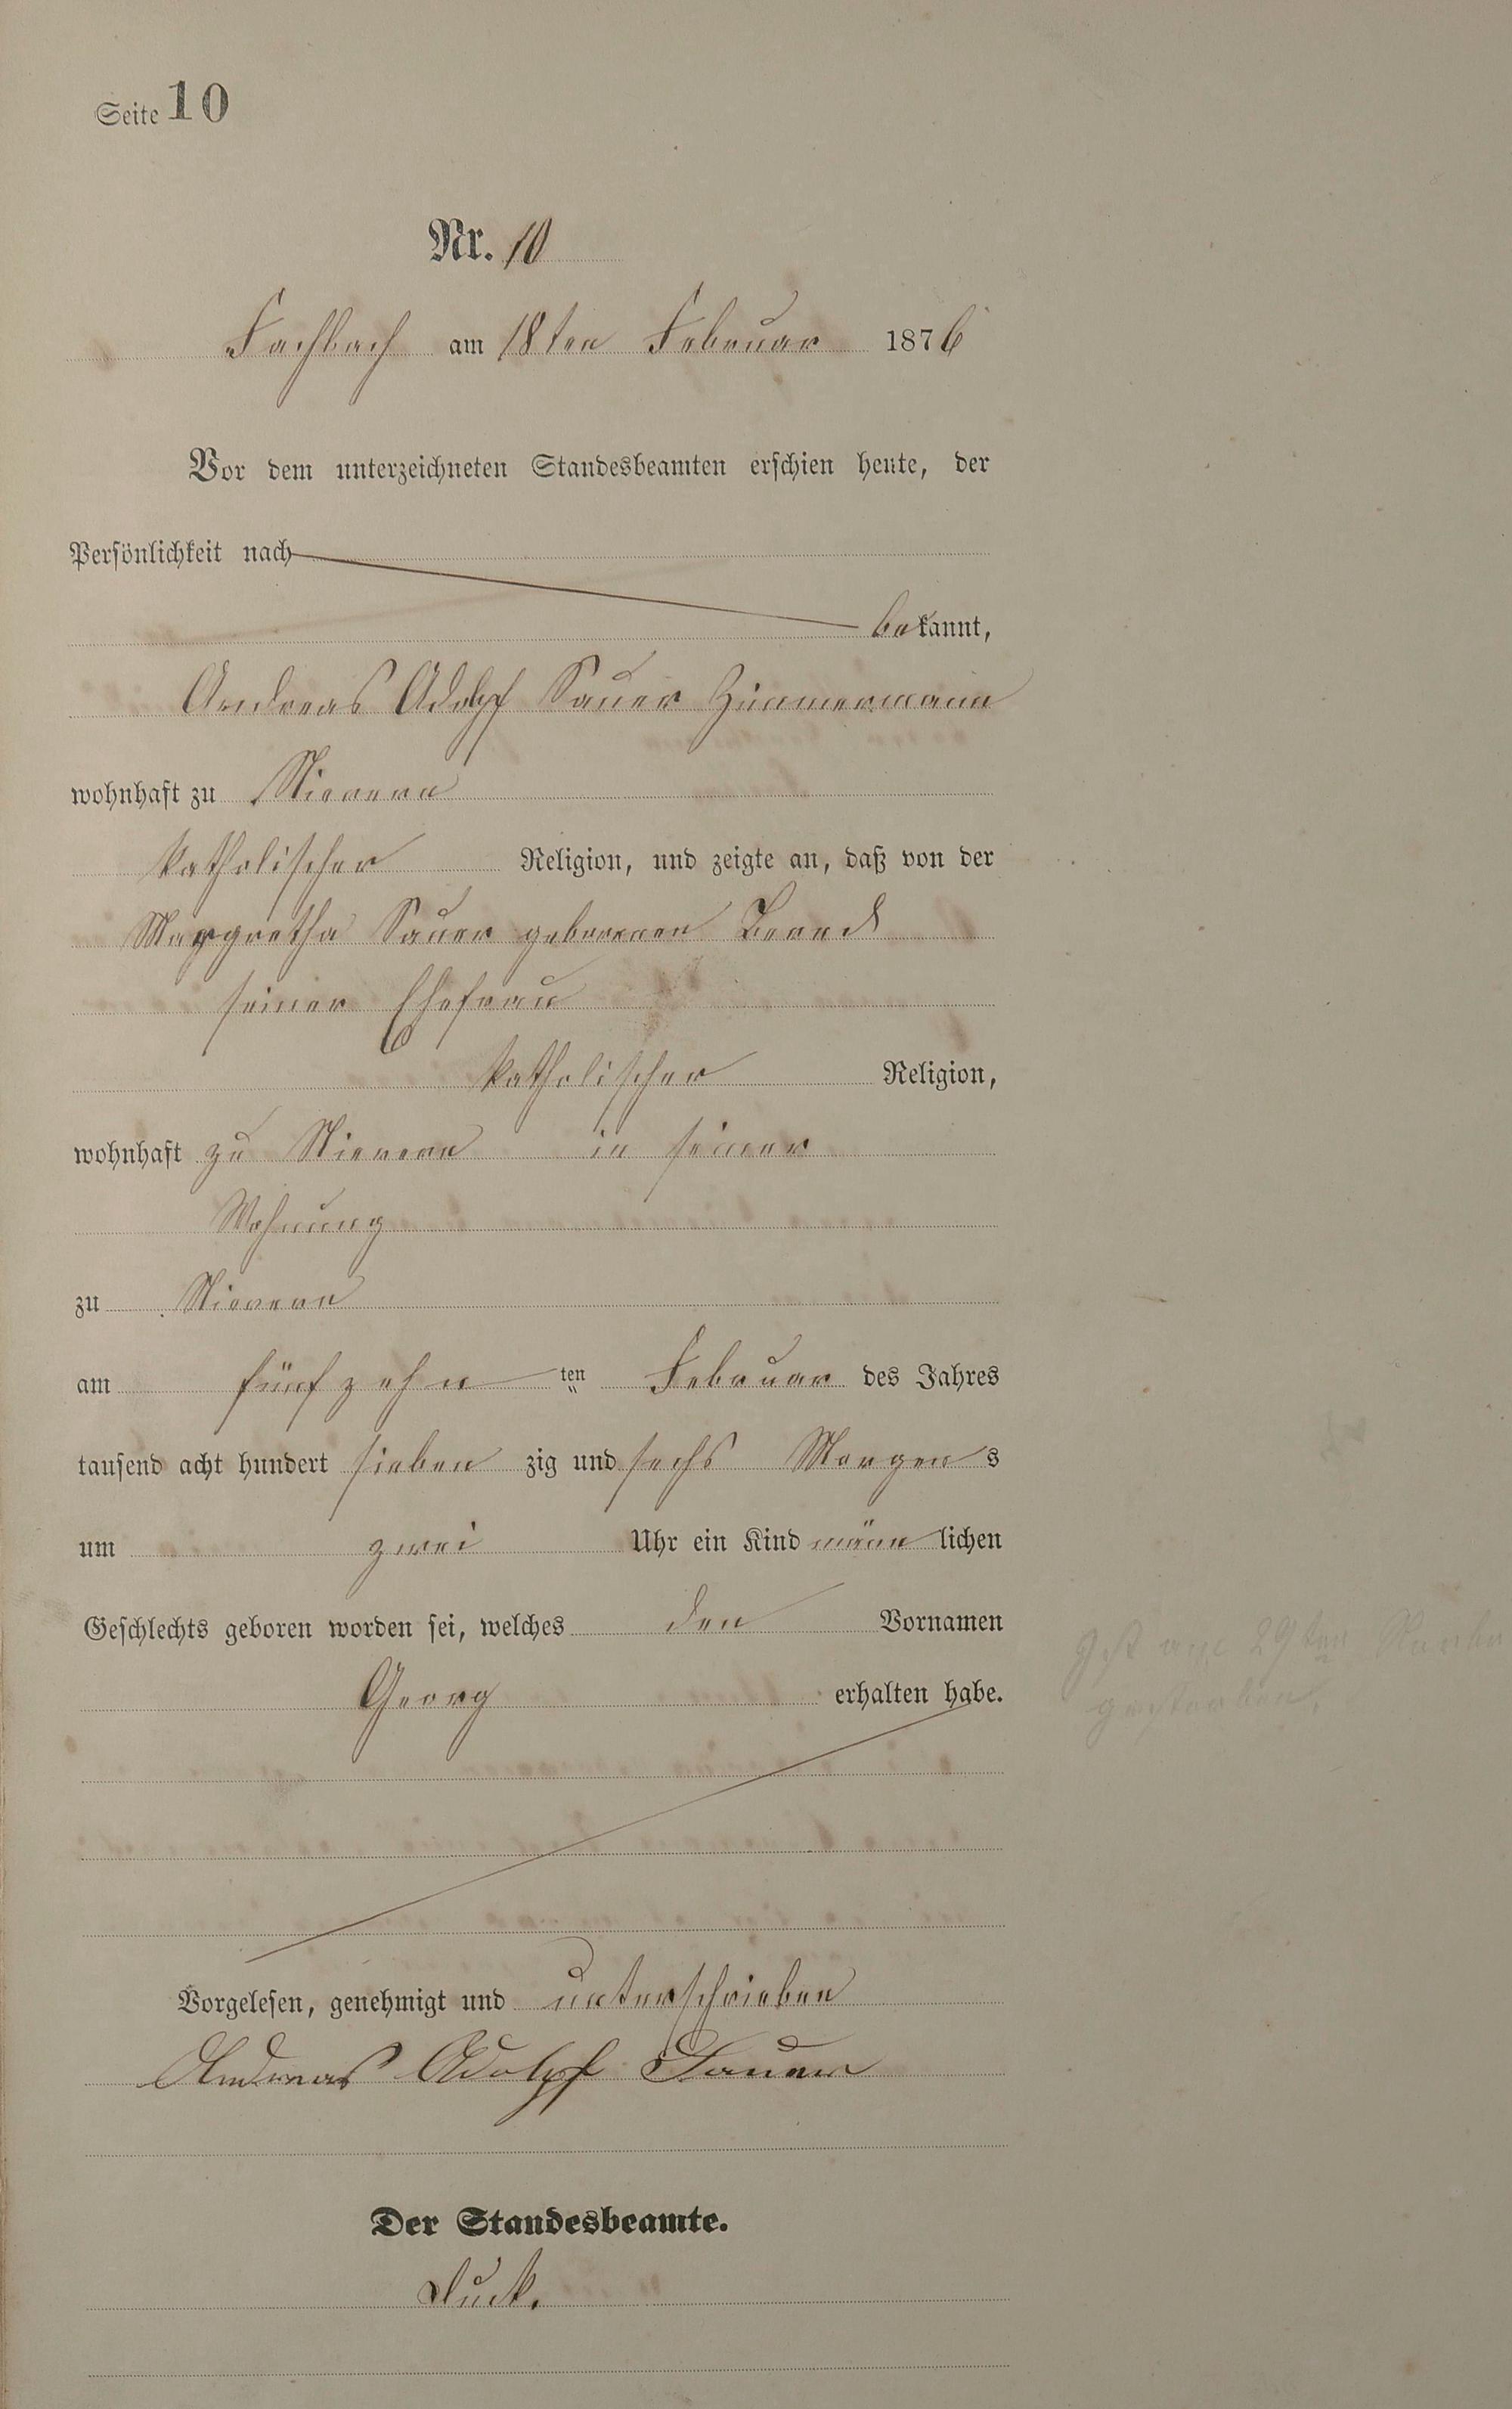 Seite 10
Nr. 10
Fachbach am 18ten Februar 1876
Vor dem unterzeichneten Standesbeamten erschien heute, der
Persönlichkeit nach
bekannt,
Andreas Adolph Sauer Zimmermann
wohnhaft zu Nievern
katholischer Religion, und zeigte an, daß von der
Margretha Sauer geborenen
seiner Ehefrau
katholischer Religion,
wohnhaft zu Nievern in seiner
Wohnung
zu Nievern
am fünfzehn ten Februar des Jahres
tausend acht hundert sieben zig und sechs Morgens
um zwei Uhr ein Kind männlichen
Geschlechts geboren worden sei, welches den Vornamen
Georg erhalten habe.
am 29ten
gestorben.
Vorgelesen, genehmigt und unterschrieben
Andreas Adolph Sauer
Der Standesbeamte.